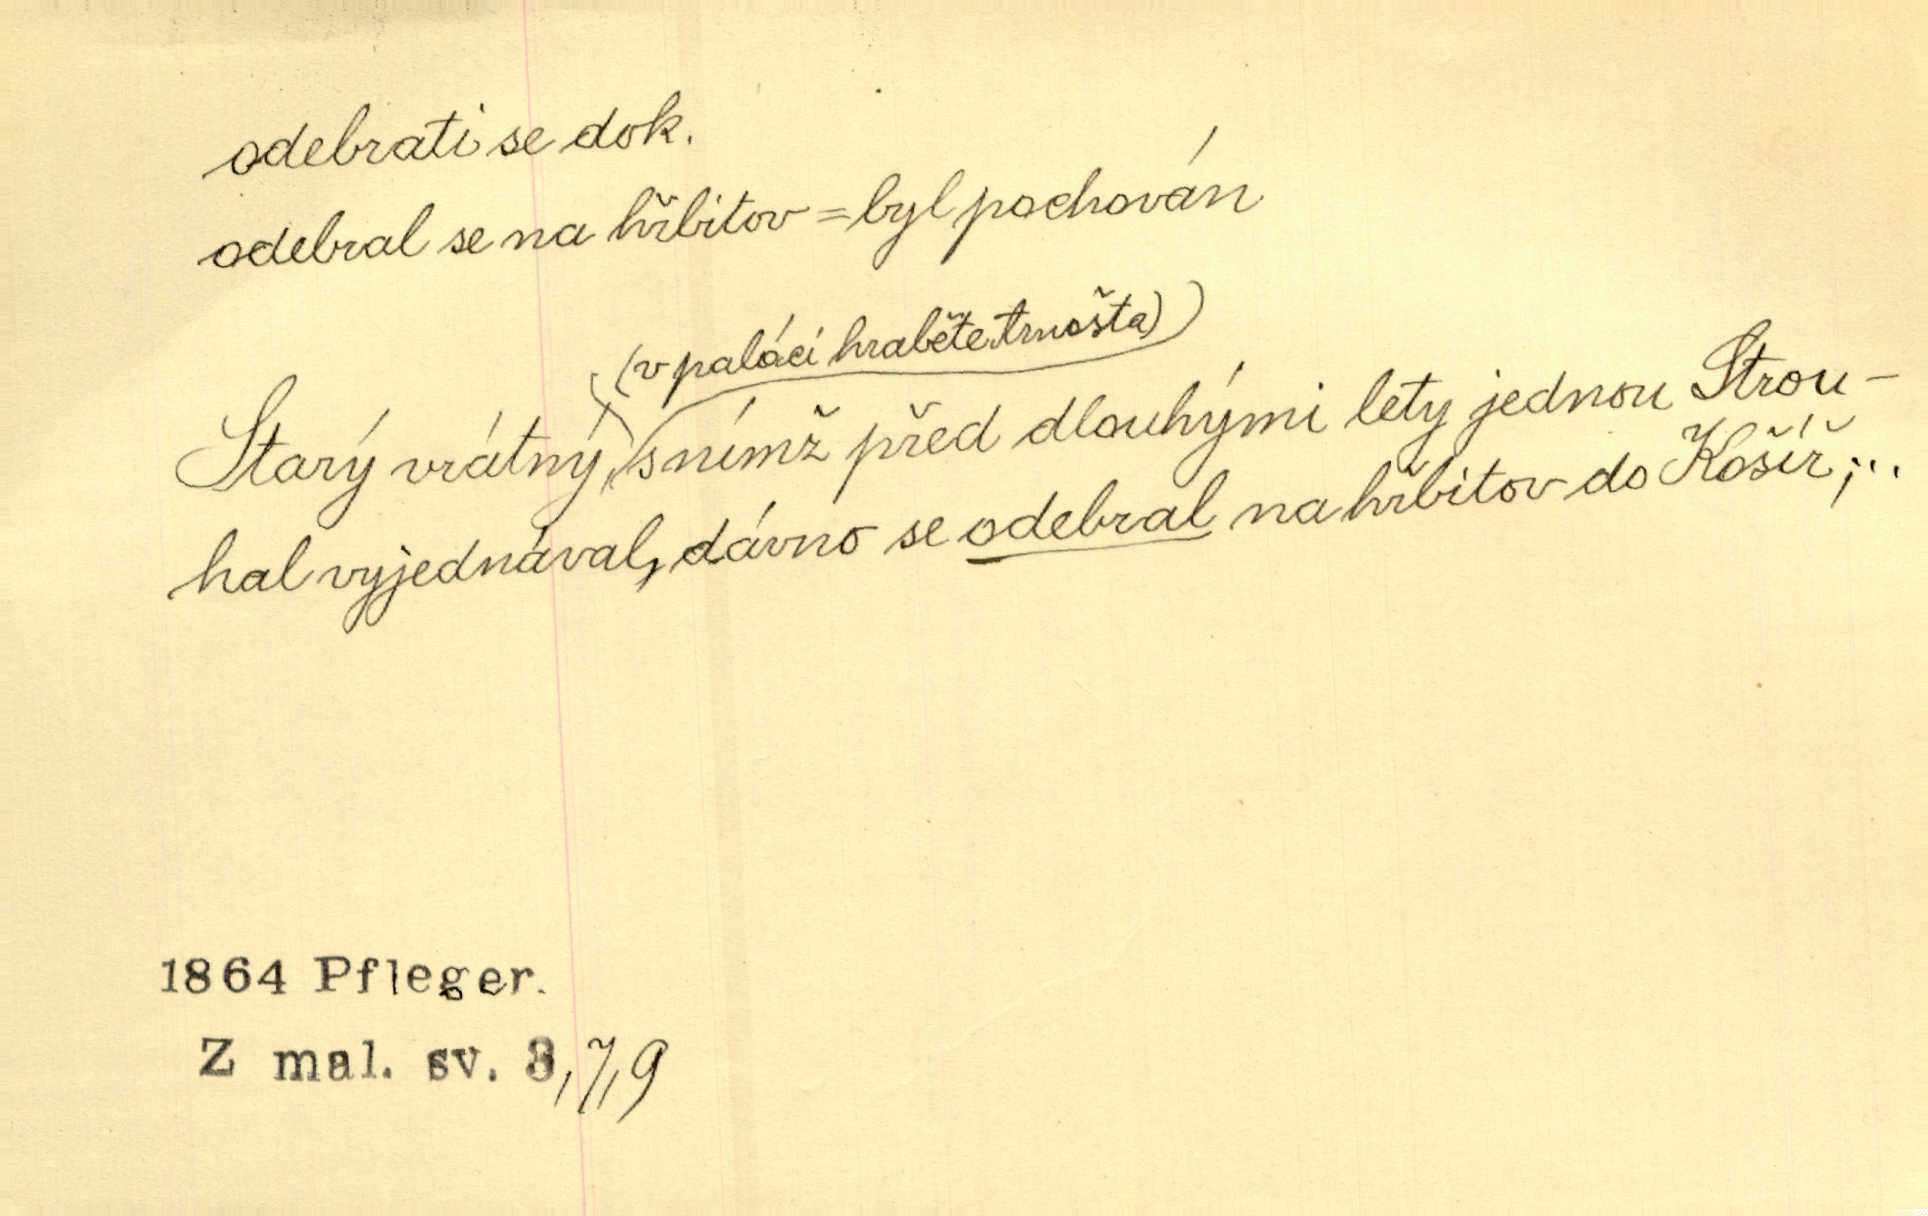 odebrati se dok.
odebral se na hřbitov = byl pochován
(v paláci hraběte Arnošta)
Starý vrátný, s nímž před dlouhými lety jednou Strou-
hal vyjednával, dávno se odebral na hřbitov do Košíř;..
1864 Pfleger.
Z mal. sv. 3,7,9